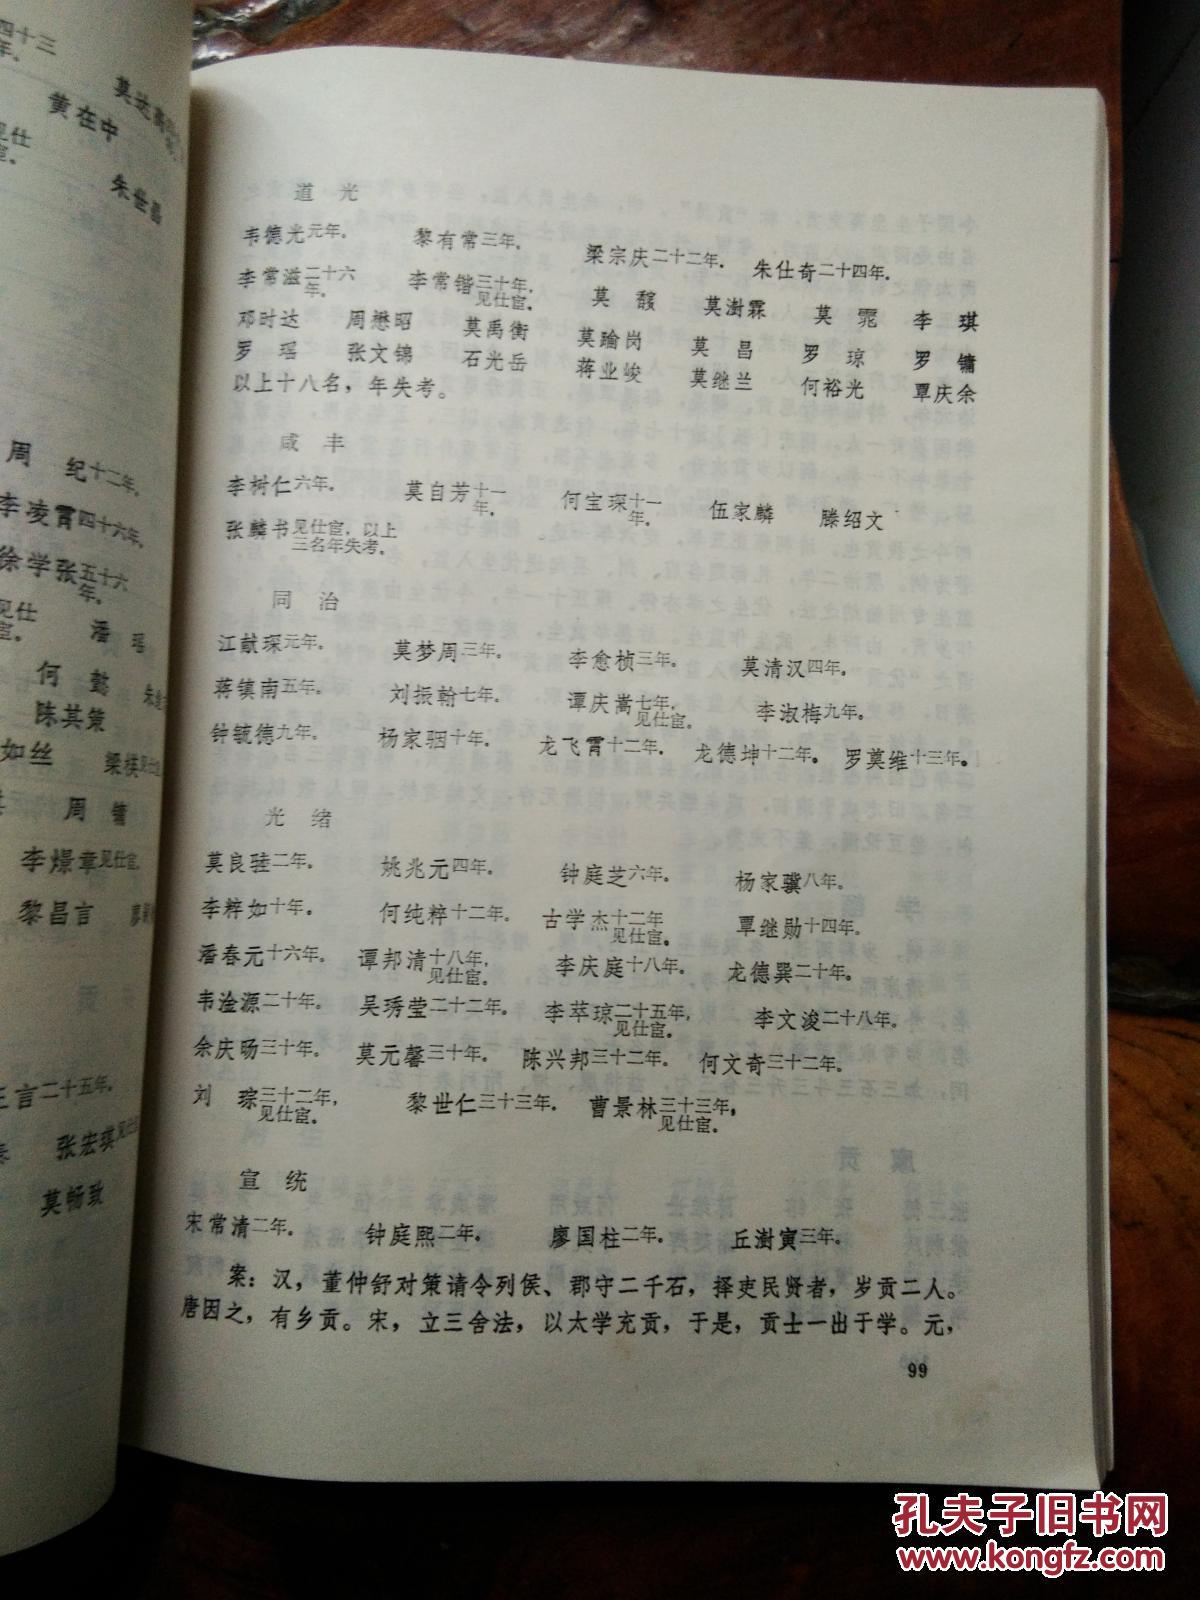 四十三
年。
莫达高
黄在中
见仕
宦。
朱世昌
周 纪十二年。
李凌霄四十六年。
徐学张五十六
年。
见仕
宦。
潘 瑶
何 懿
陈其策
如丝 梁棋见仕
周 镛
李燝章见仕宦。
黎昌言
言二十五年。
张宏琪见仕
莫畅致
道 光
韦德光元年。 黎有常三年。 梁宗庆二十二年。 朱仕奇二十四年。
李常滋二十六年。 李常锴三十年，见仕宦。 莫 馥 莫澍霖 莫 霓 李 琪
邓时达 周懋昭 莫禹衡 莫瑜岗 莫 昌 罗 琼 罗 镛
罗 瑶 张文锦 石光岳 蒋业峻 莫继兰 何裕光 覃庆余
以上十八名，年失考。
咸 丰
李树仁六年。 莫自芳十一年。 何宝琛十一年。 伍家麟 滕绍文
张麟书见仕宦，以上三名年失考。
同 治
江献琛元年。 莫梦周三年。 李愈桢三年。 莫清汉四年。
蒋镇南五年。 刘振翰七年。 谭庆嵩七年，见仕宦。 李淑梅九年。
钟毓德九年。 杨家驷十年。 龙飞霄十二年。 龙德坤十二年。 罗莫维十三年。
光 绪
莫良驻二年。 姚兆元四年。 钟庭芝六年。 杨家骥八年。
李粹如十年。 何纯粹十二年。 古学杰十二年见仕宦。 覃继勋十四年。
潘春元十六年。 谭邦清十八年，见仕宦。 李庆庭十八年。 龙德巽二十年。
韦淦源二十年。 吴琇莹二十二年。 李萃琼二十五年，见仕宦。 李文浚二十八年。
余庆旸三十年。 莫元馨三十年。 陈兴邦三十二年。 何文奇三十二年。
刘 琮三十二年，见仕宦。 黎世仁三十三年。 曹景林三十三年，见仕宦。
宣 统
宋常清二年。 钟庭熙二年。 廖国柱二年。 丘澍寅三年。
案：汉，董仲舒对策请令列侯、郡守二千石，择吏民贤者，岁贡二人。
唐因之，有乡贡。宋，立三舍法，以太学充贡，于是，贡士一出于学。元，
99
孔夫子旧书网
www.kongfz.com